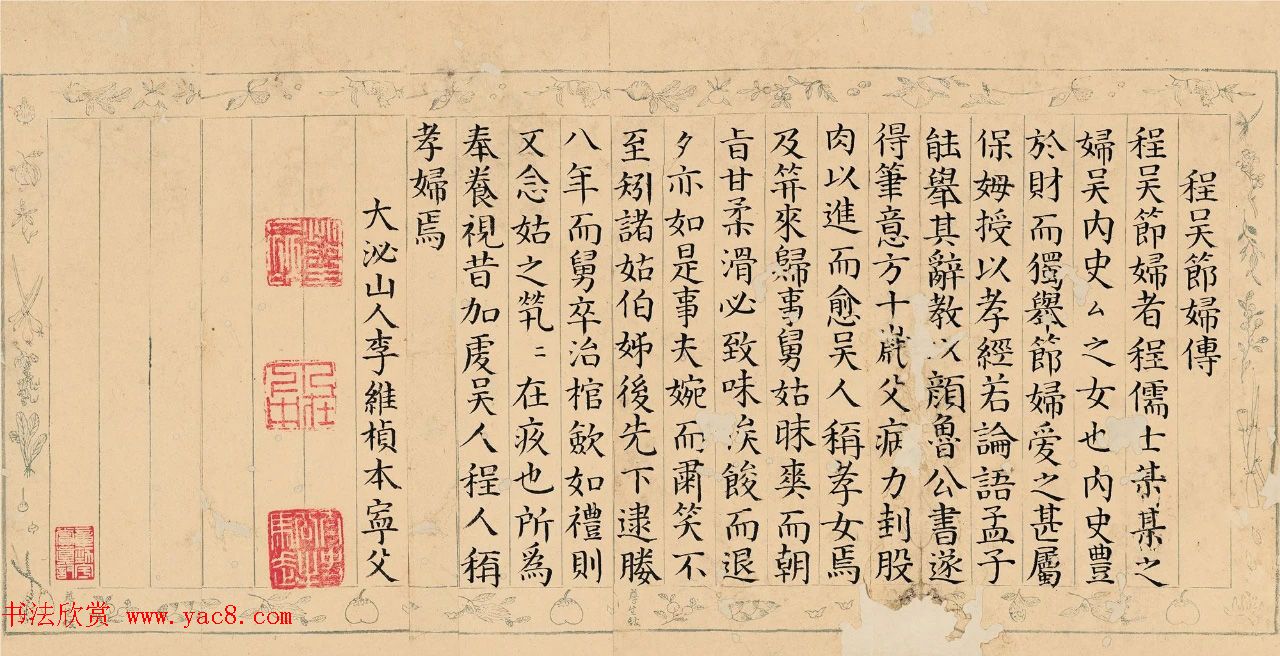 程吴節婦傳
程吴節婦者程儒士某某之
婦吴内史厶之女也内史豊
於財而獨舉節婦爱之甚屬
保姆授以孝經若論語孟子
能舉其辭教以顔魯公書遂
得筆意方十歲父病力刲股
肉以進而愈吴人稱孝女焉
及笄來歸事舅姑昧爽而朝
旨甘柔滑必致味涘餕而退
夕亦如是事夫婉而肅笑不
至矧諸姑伯姊後先下逮媵
八年而舅卒治棺斂如禮則
又念姑之煢〻在疚也所爲
奉養視昔加虔吴人程人稱
孝婦焉
大泌山人李維楨本寍父
书法欣赏 www.yac8.com